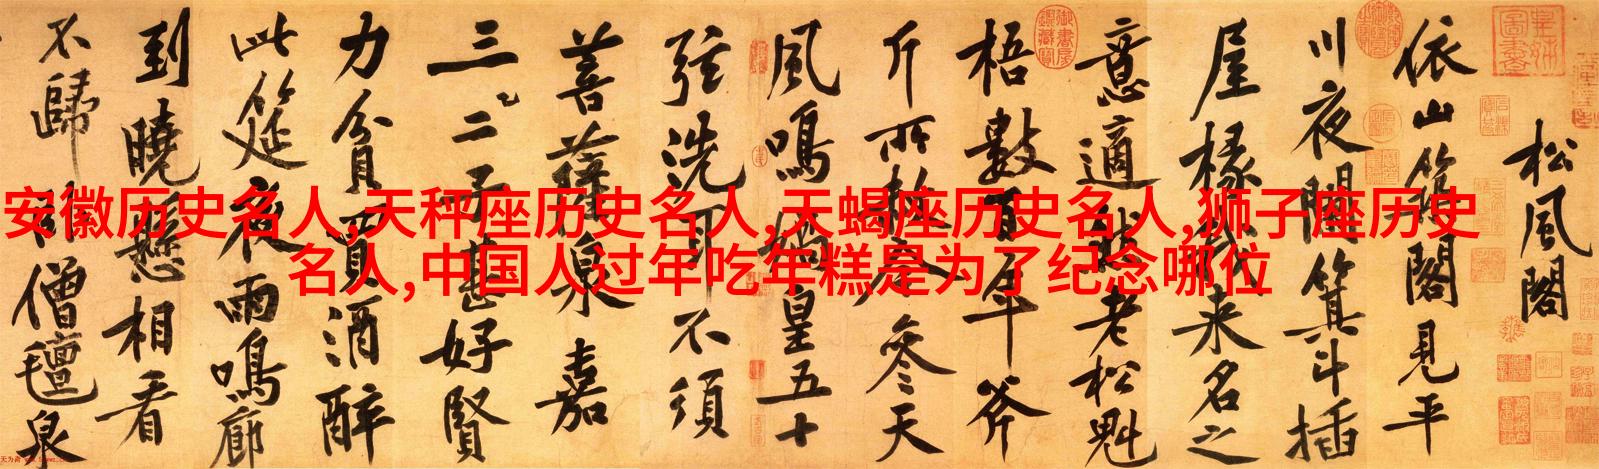 松風閣
依山築閣見平
川夜闌箕斗插
屋椽我來名之
意適然老松魁
梧數百年斧
斤所赦今參天
風鳴媧皇五十
弦洗耳不須
菩薩泉嘉
三二子甚好賢
力貧買酒醉
此筵夜雨鳴廊
到曉懸相看
不歸卧僧氈泉
安徽历史名人,天秤座历史名人,天蝎座历史名人,狮子座历史
名人,中国人过年吃年糕是为了纪念哪位